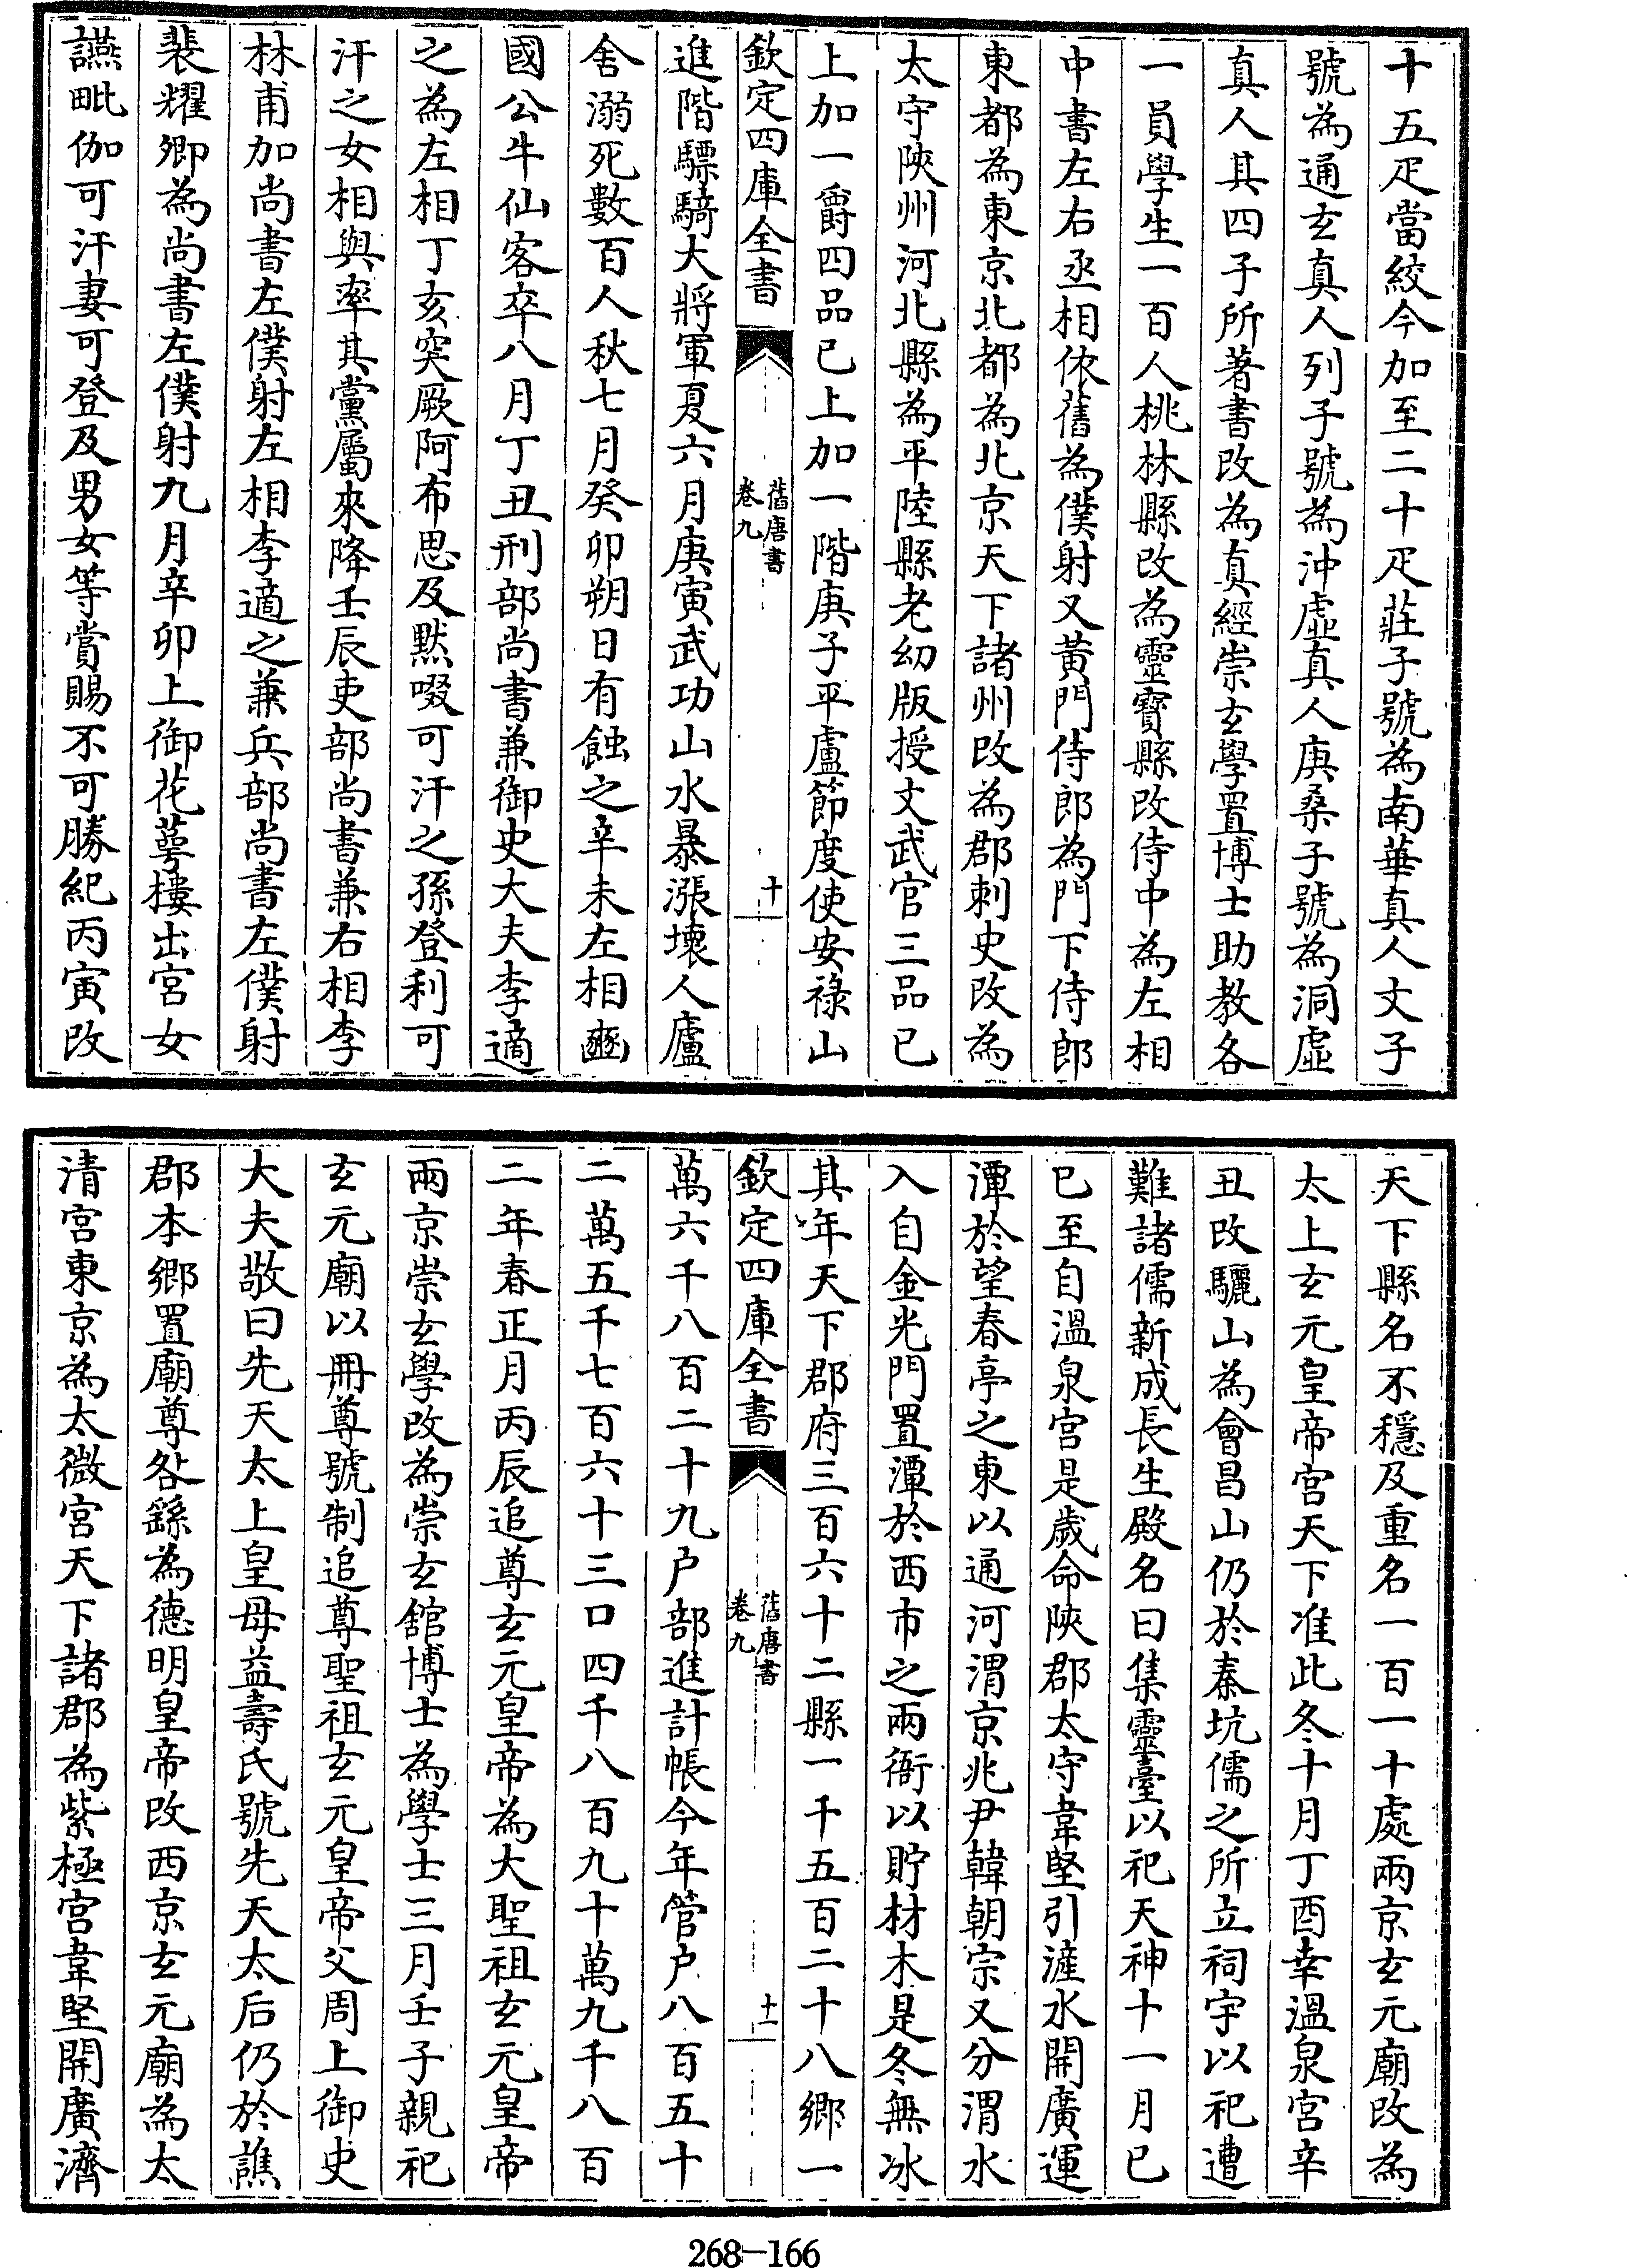 十五疋當絞今加至二十疋莊子號為南華真人文子
號為通玄真人列子號為沖虛真人庚桑子號為洞虛
真人其四子所著書改為真經崇玄學置博士助教各
一員學生一百人桃林縣改為靈寶縣改侍中為左相
中書左右丞相依舊為僕射又黃門侍郎為門下侍郎
東都為東京北都為北京天下諸州改為郡刺史改為
太守陜州河北縣為平陸縣老幼版授文武官三品已
上加一爵四品已上加一階庚子平盧節度使安祿山
欽定四庫全書
舊唐書
卷九
十
進階驃騎大將軍夏六月庚寅武功山水暴漲壞人廬
舍溺死數百人秋七月癸卯朔日有蝕之辛未左相豳
國公牛仙客卒八月丁丑刑部尚書兼御史大夫李適
之為左相丁亥突厥阿布思及默啜可汗之孫登利可
汗之女相與率其黨屬來降壬辰吏部尚書兼右相李
林甫加尚書左僕射左相李適之兼兵部尚書左僕射
裴耀卿為尚書左僕射九月辛卯上御花萼樓出宮女
讌毗伽可汗妻可登及男女等賞賜不可勝紀丙寅改
天下縣名不穩及重名一百一十處兩京玄元廟改為
太上玄元皇帝宮天下准此冬十月丁酉幸溫泉宮辛
丑改驪山為會昌山仍於秦坑儒之所立祠宇以祀遭
難諸儒新成長生殿名曰集靈臺以祀天神十一月己
巳至自溫泉宮是歲命陝郡太守韋堅引滻水開廣運
潭於望春亭之東以通河渭京兆尹韓朝宗又分渭水
入自金光門置潭於西市之兩衙以貯材木是冬無冰
其年天下郡府三百六十二縣一千五百二十八鄉一
欽定四庫全書
舊唐書
卷九
十一
萬六千八百二十九户部進計帳今年管户八百五十
二萬五千七百六十三口四千八百九十萬九千八百
二年春正月丙辰追尊玄元皇帝為大聖祖玄元皇帝
兩京崇玄學改為崇玄舘博士為學士三月壬子親祀
玄元廟以冊尊號制追尊聖祖玄元皇帝父周上御史
大夫敬曰先天太上皇母益壽氏號先天太后仍於譙
郡本鄉置廟尊咎繇為德明皇帝改西京玄元廟為太
清宮東京為太微宮天下諸郡為紫極宮韋堅開廣濟
268-166